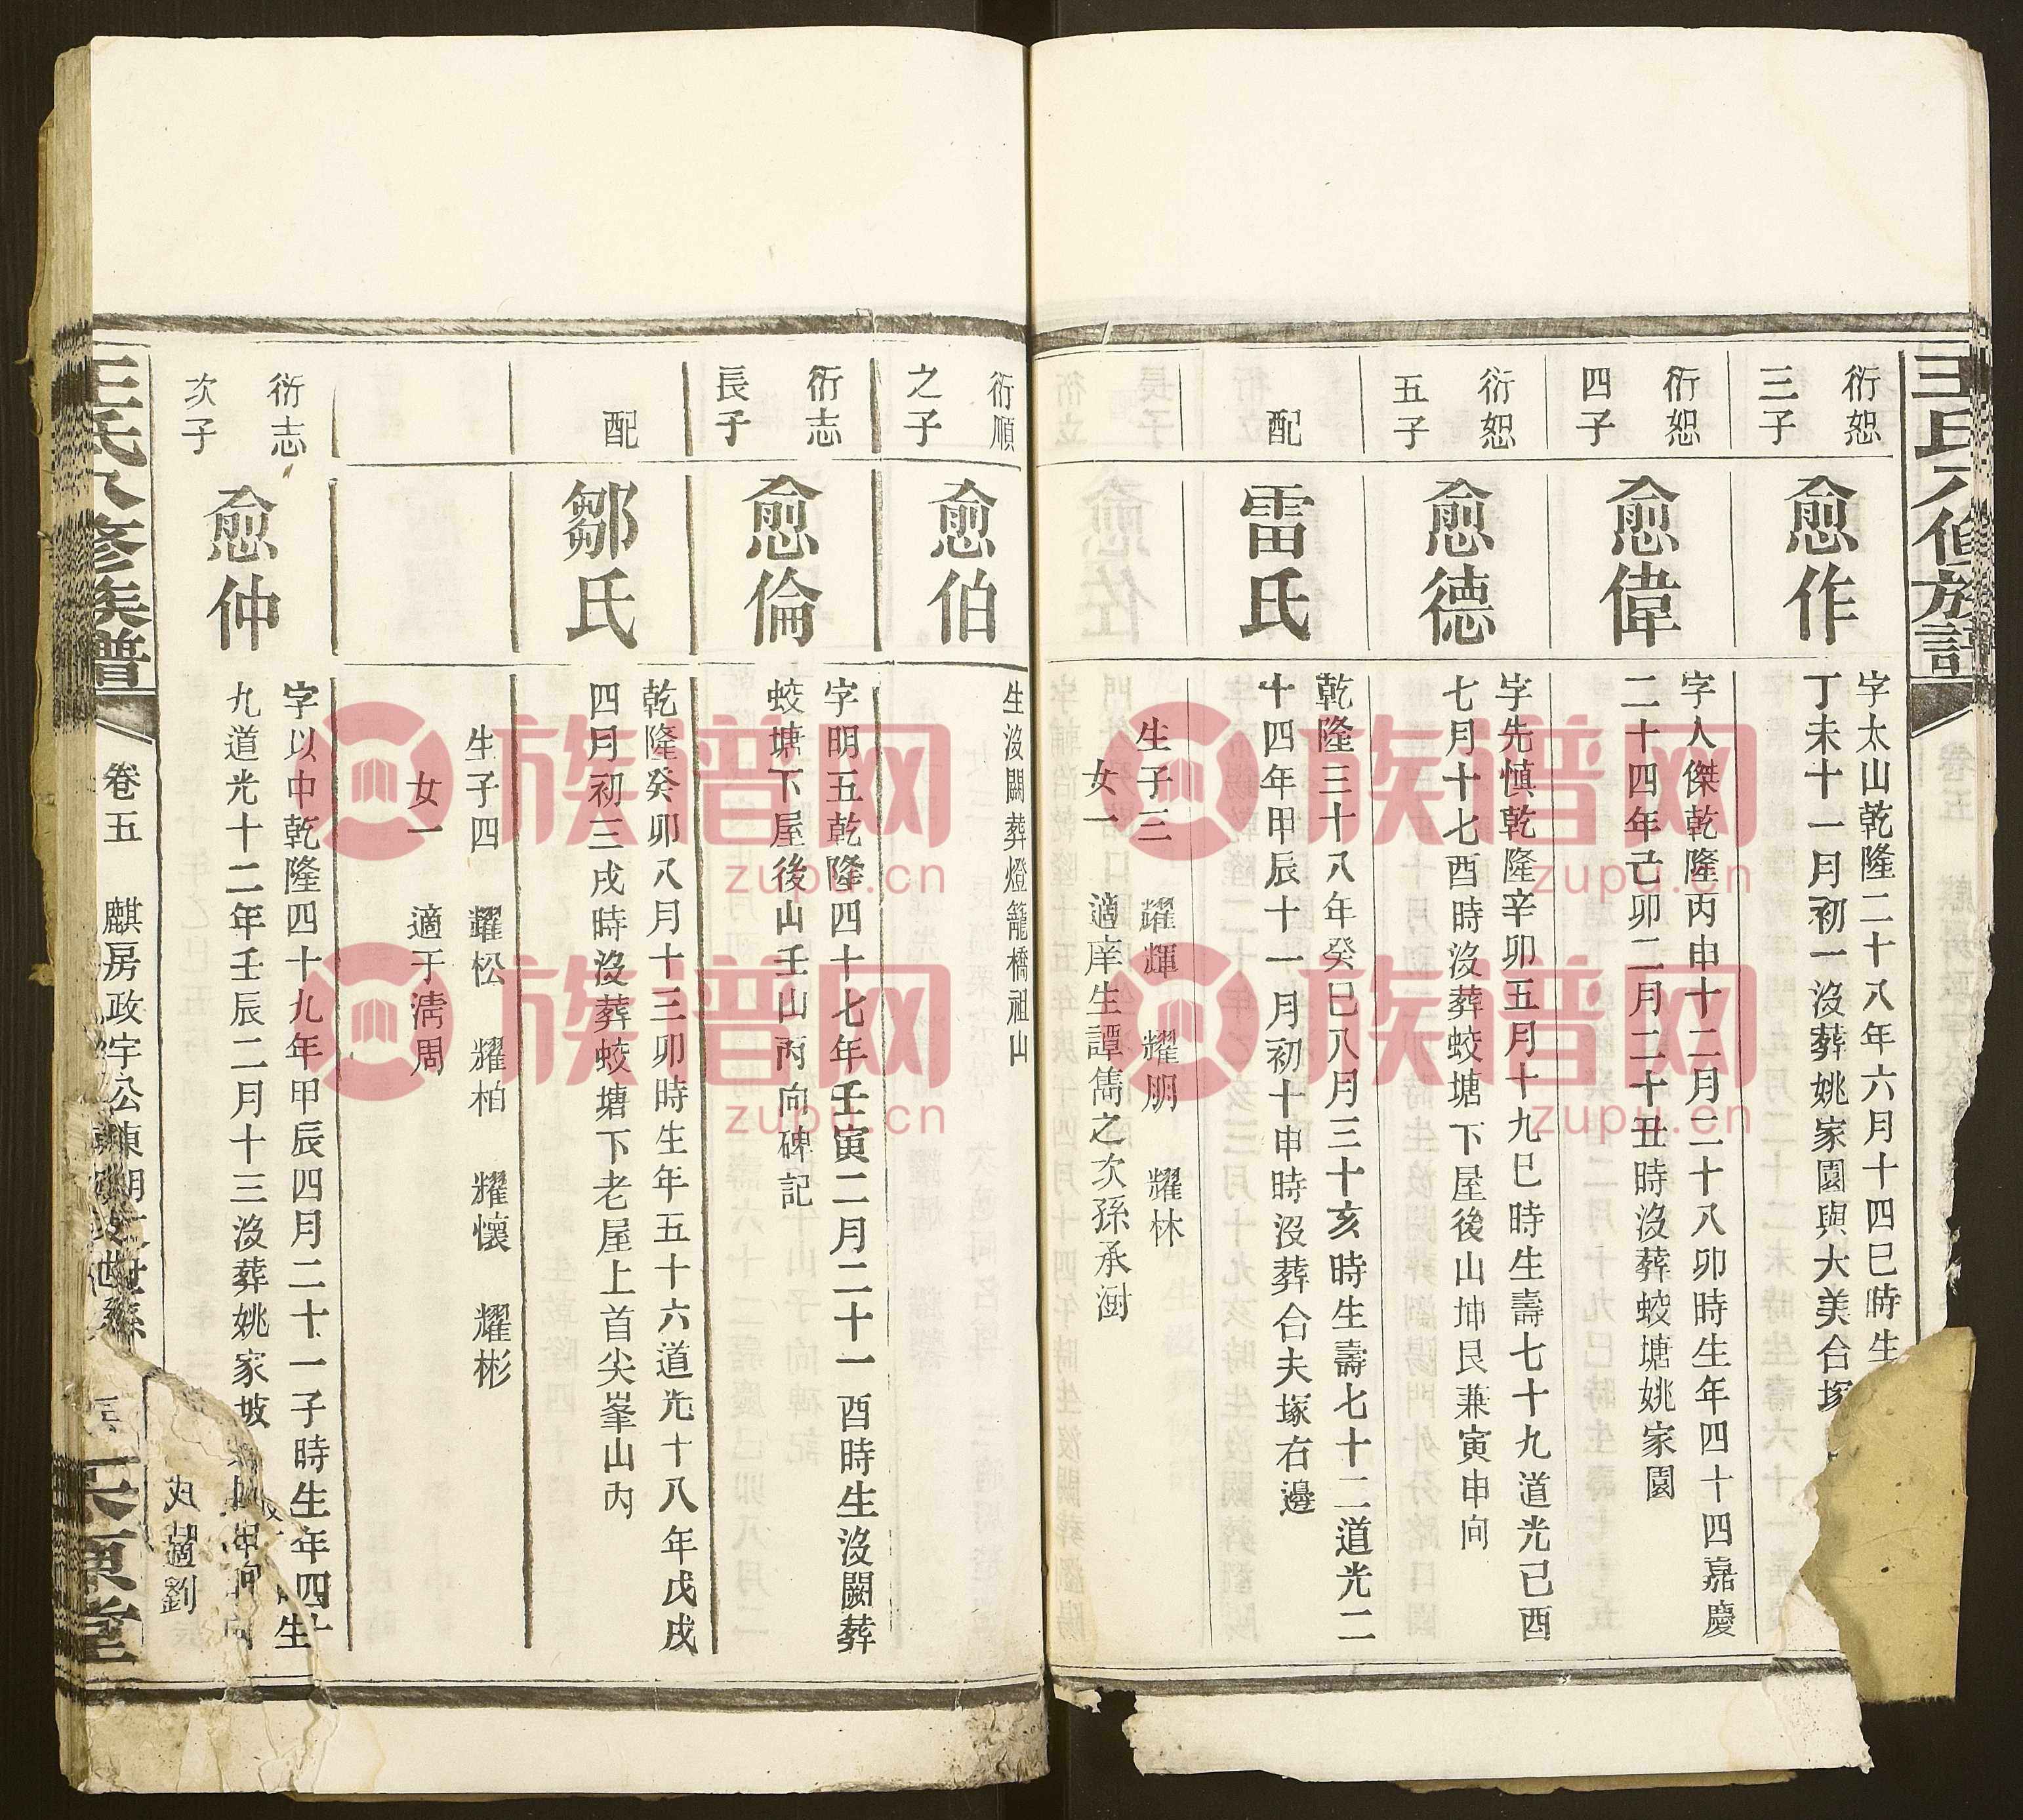 王氏八修族譜
衍恕
三子
愈作
字太山乾隆二十八年六月十四巳時生
丁未十一月初一沒葬姚家園與大美合塚
衍恕
四子
愈偉
字人傑乾隆丙申十二月二十八卯時生年四十四嘉慶
二十四年己卯二月二十丑時沒葬蛟塘姚家園
衍恕
五子
愈德
字先慎乾隆辛卯五月十九巳時生壽七十九道光己酉
七月十七酉時沒葬蛟塘下屋後山坤艮兼寅申向
配
雷氏
乾隆三十八年癸巳八月三十亥時生壽七十二道光二
十四年甲辰十一月初十申時沒葬合夫塚右邊
生子三 耀輝 耀朋 耀林
女一 適庠生譚雋之次孫承澍
衍順
之子
愈伯
生沒闕葬燈籠橋祖山
衍志
長子
愈倫
字明五乾隆四十七年壬寅二月二十一酉時生沒闕葬
蛟塘下屋後山壬山丙向碑記
配
鄒氏
乾隆癸卯八月十三卯時生年五十六道光十八年戊戌
四月初三戌時沒葬蛟塘下老屋上首尖峯山內
生子四 耀松 耀柏 耀懷 耀彬
女一 適于清周
衍志
次子
愈仲
字以中乾隆四十九年甲辰四月二十一子時生年四十
九道光十二年壬辰二月十三沒葬姚家坡
生
適劉
王氏八修族譜
卷五 麒房政宇公
堂
族譜网
zupu.cn
族譜网
zupu.cn
族譜网
zupu.cn
族譜网
zupu.cn